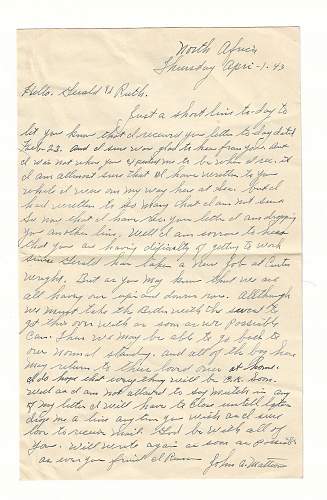 North Africa
Thursday Apri-1-43
Hello. Gerald & Ruth.
Just a short line to-day to
let you know that I received your letter to-day dated
Feb-23. and I sure was glad to hear from you. But
I was not when you expected me to be when I rec. it
I am allmost sure that I have written to you
while I was on my way here at Sea. but I
had written to so many that I am not sure
So now that I have rec. your letter I am dropping
you another line. Well I am sorrow to hear
that you are having dificulty of getting to work
since Gerald has taken a new job at Curtiss
Wright. But as you may know that we are
all having our ups and downs now. Although
we must take the Bitter with the sweet to
get this over with as soon as we possible
can. Then we may be able to go back to
our normal standing. and all of the boys here
may return to their loved ones at home.
I do hope that everything will be O.K. soon.
Well as I am not allowed to say much in any
of my letter I will have to close untill later
drop me a line any time you wish and I sure
too to receive it. God be with all of
you. Will write again as soon as possible
as ever your friend
John A. Mattson